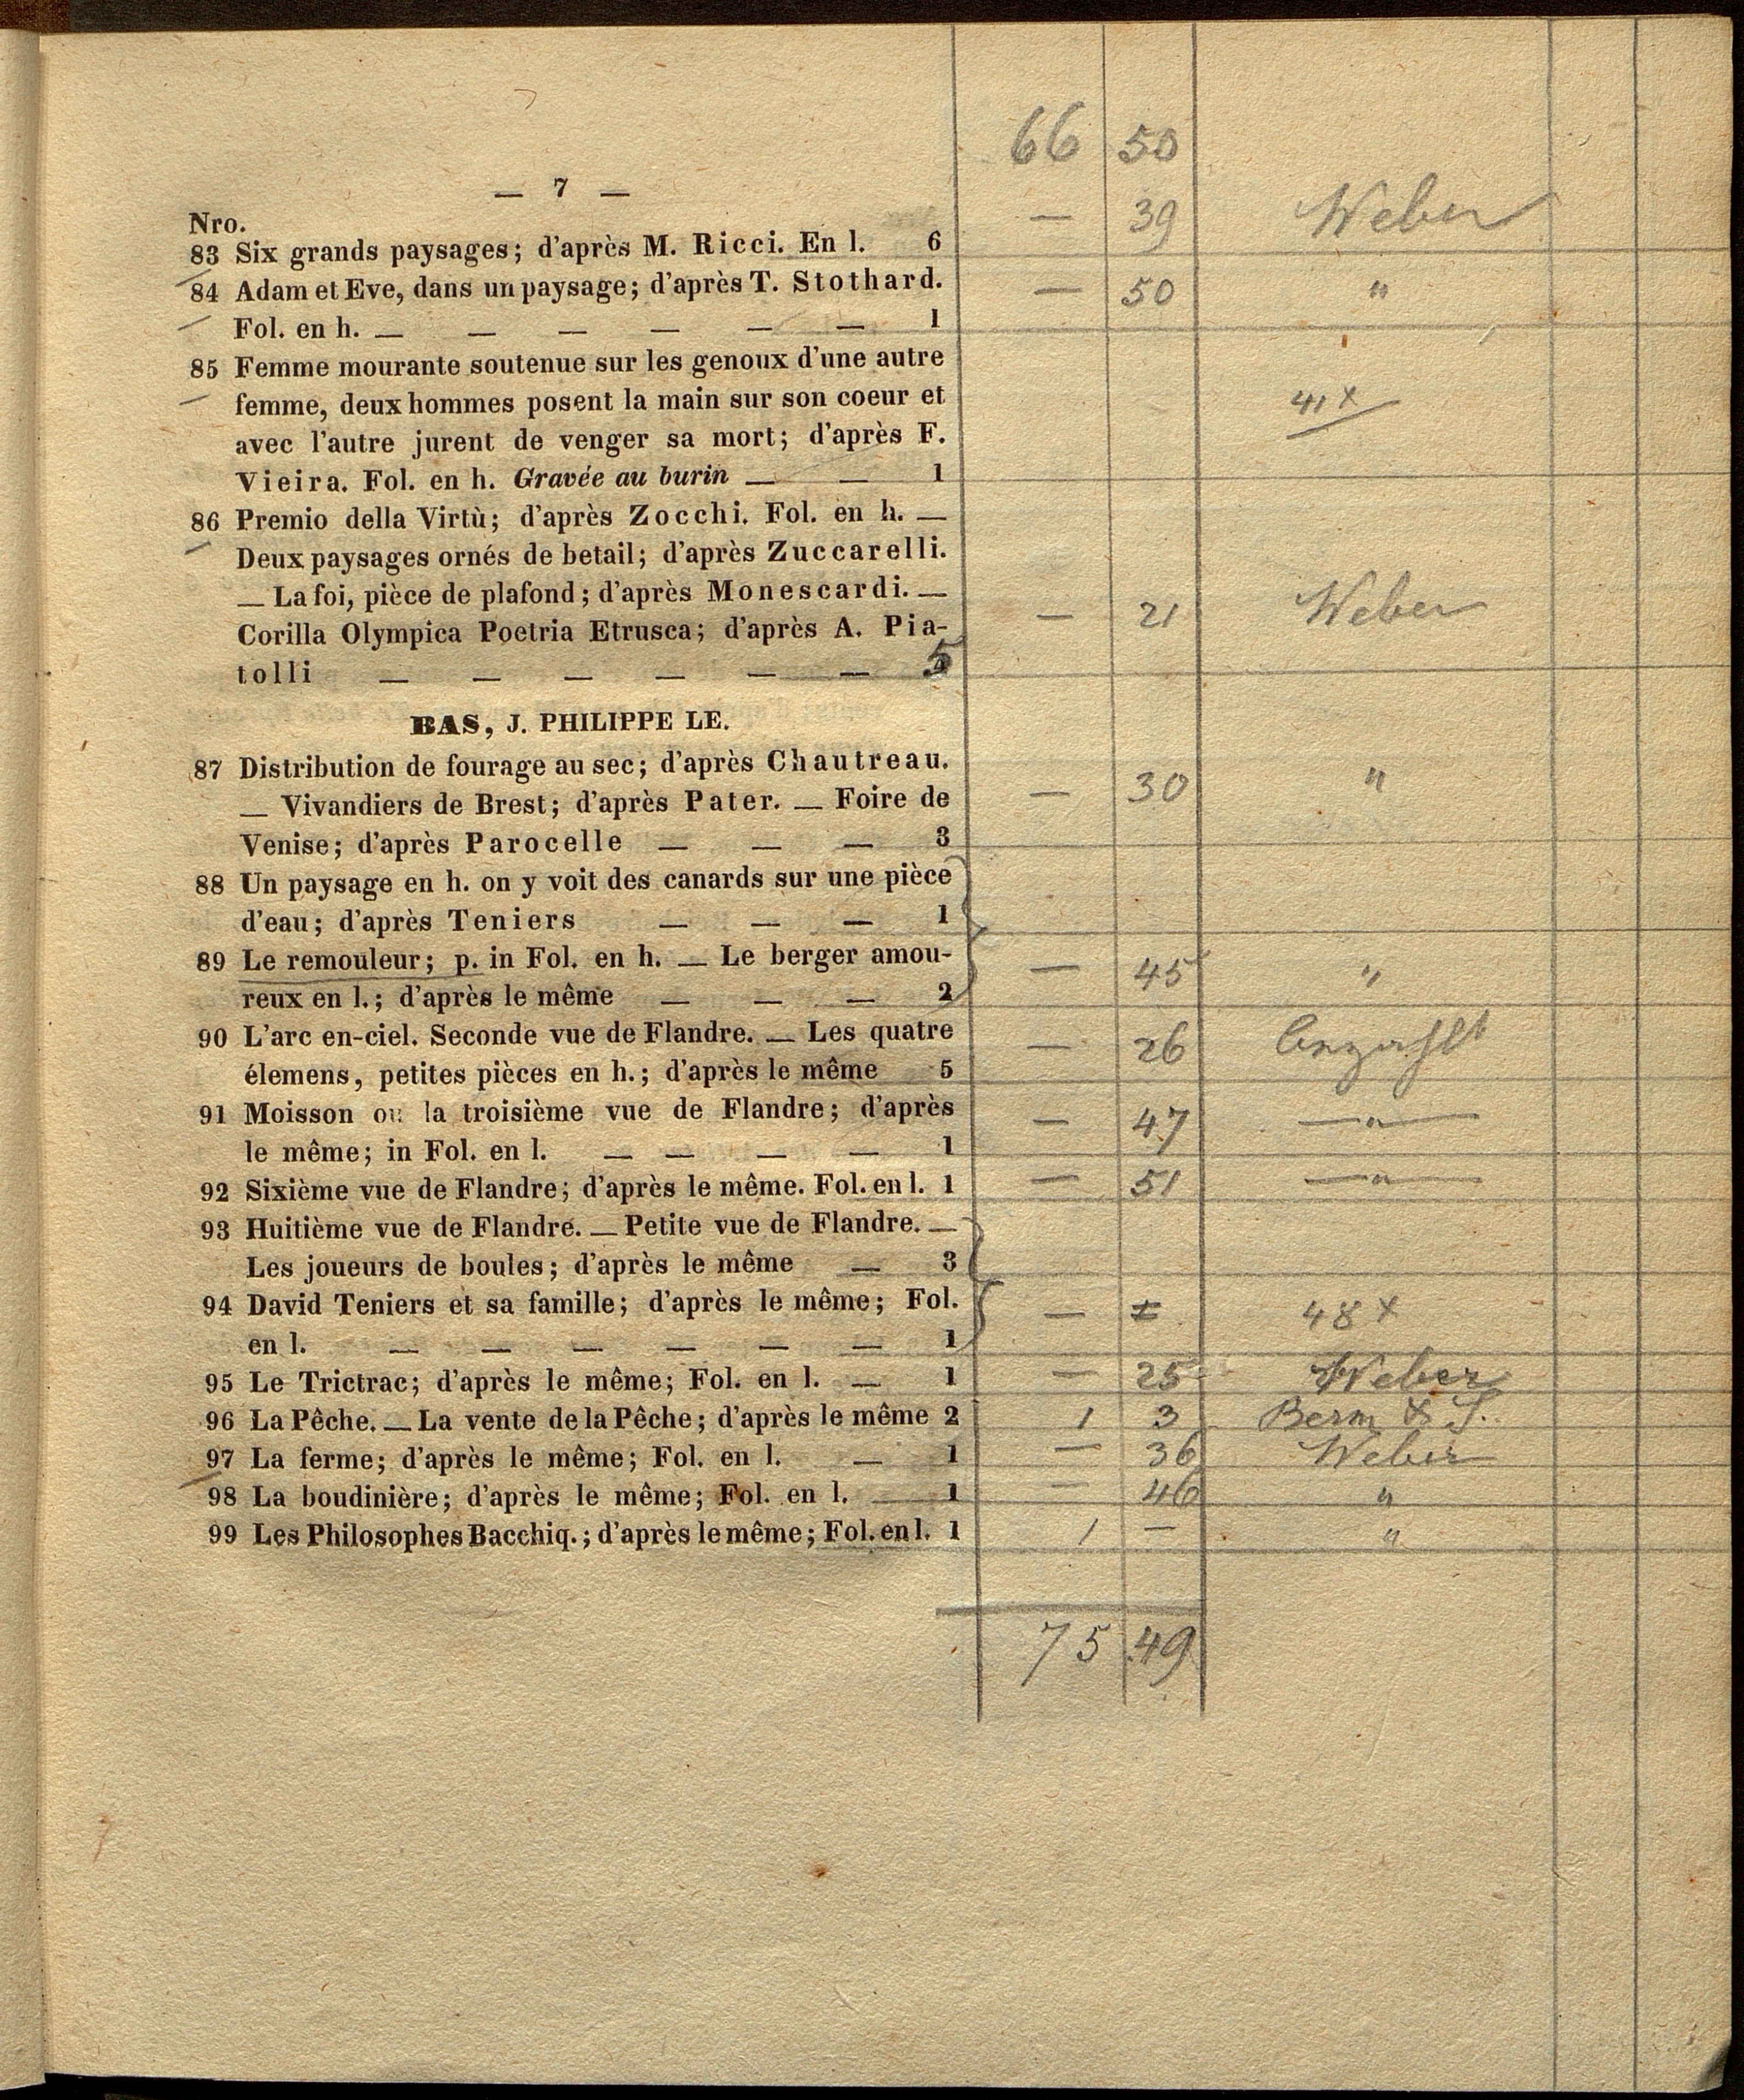 66 50
— 7 —
Nro.
83 Six grands paysages; d'après M. Ricci. En l. 6 — 39 Weber
84 Adam et Eve, dans un paysage; d'après T. Stothard. — 50 "
Fol. en h. — — — — — — 1
85 Femme mourante soutenue sur les genoux d'une autre
femme, deux hommes posent la main sur son coeur et 41 x
avec l'autre jurent de venger sa mort; d'après F.
Vieira. Fol. en h. Gravée au burin — — 1
86 Premio della Virtù; d'après Zocchi. Fol. en h. —
Deux paysages ornés de betail; d'après Zuccarelli.
— La foi, pièce de plafond; d'après Monescardi. —
Corilla Olympica Poetria Etrusca; d'après A. Pia- — 21 Weber
tolli — — — — — — 5
BAS, J. PHILIPPE LE.
87 Distribution de fourage au sec; d'après Chautreau.
— Vivandiers de Brest; d'après Pater. — Foire de — 30 "
Venise; d'après Parocelle — — — 3
88 Un paysage en h. on y voit des canards sur une pièce
d'eau; d'après Teniers — — — 1
89 Le remouleur; p. in Fol. en h. — Le berger amou- — 45 "
reux en l.; d'après le même — — — 2
90 L'arc en-ciel. Seconde vue de Flandre. — Les quatre — 26
élemens, petites pièces en h.; d'après le même 5
91 Moisson ou la troisième vue de Flandre; d'après — 47 — " —
le même; in Fol. en l. — — — — 1
92 Sixième vue de Flandre; d'après le même. Fol. en l. 1 — 51 — " —
93 Huitième vue de Flandre. — Petite vue de Flandre. —
Les joueurs de boules; d'après le même — 3
94 David Teniers et sa famille; d'après le même; Fol. — 48 x
en l. — — — — — — 1
95 Le Trictrac; d'après le même; Fol. en l. — 1 — 25 Weber
96 La Pêche. — La vente de la Pêche; d'après le même 2 1 3 Berm & S.
97 La ferme; d'après le même; Fol. en l. — 1 — 36 Weber
98 La boudinière; d'après le même; Fol. en l. — 1 — 46 "
99 Les Philosophes Bacchiq.; d'après le même; Fol. en l. 1 1 — "
75 49